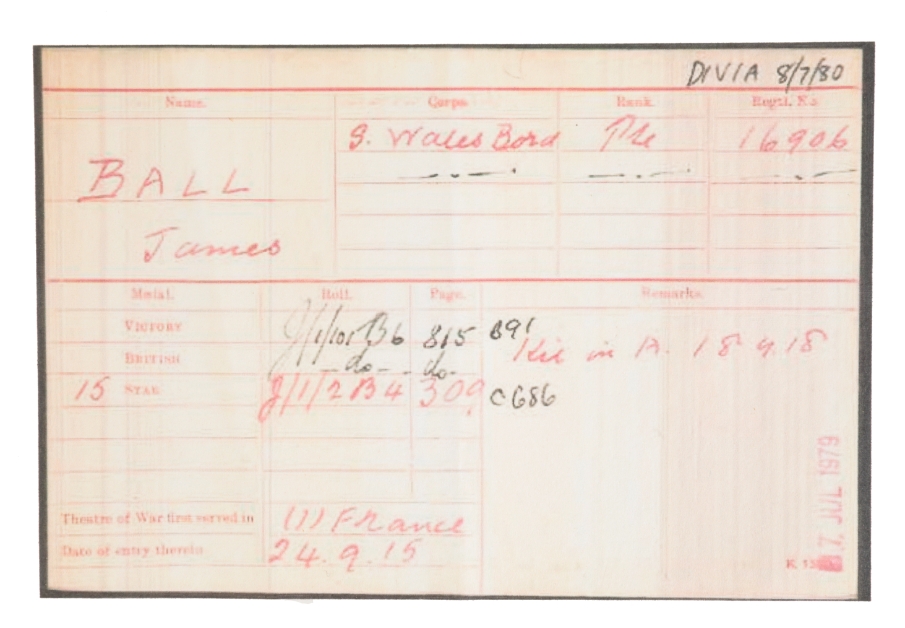 DIVIA 8/7/80
Name. Corps. Rank. Regtl. No.
S. Wales Bord Pte 16906
BALL —.—. —.—. —.—
James
Medal. Roll. Page. Remarks.
VICTORY J/1/101 B6 815 B91
Kil in A. 18.9.18
BRITISH —do— —do—
15 STAR J/1/2 B4 309 C686
Theatre of War first served in (1) France
Date of entry therein 24.9.15
7 JUL 1979